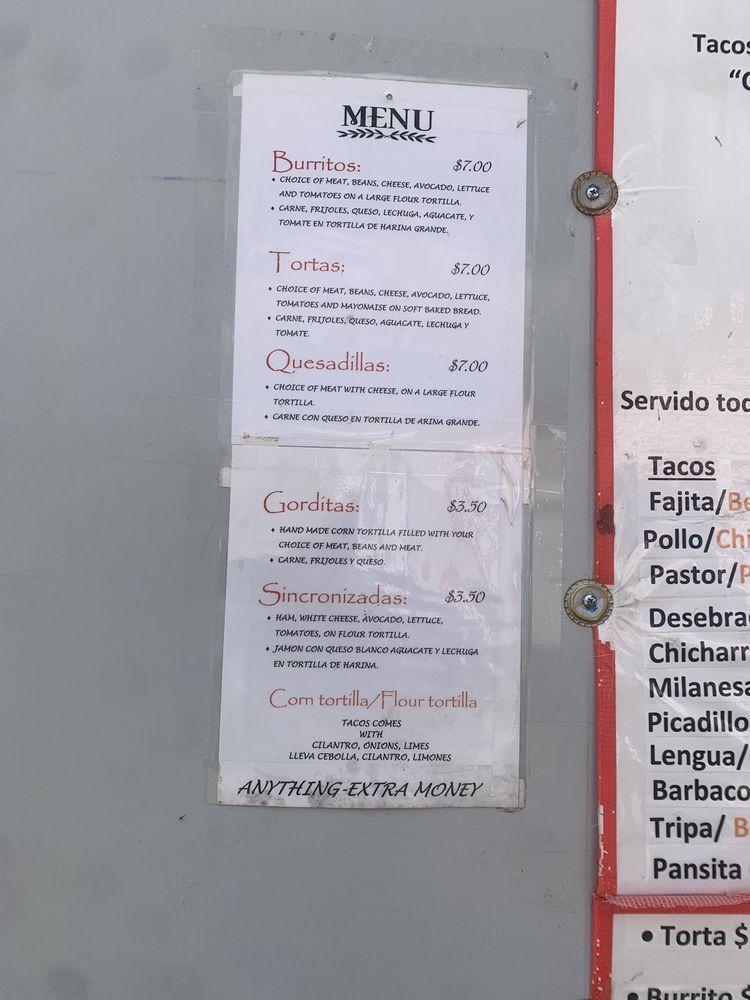 MENU
Burritos: $7.00
• CHOICE OF MEAT, BEANS, CHEESE, AVOCADO, LETTUCE
AND TOMATOES ON A LARGE FLOUR TORTILLA.
• CARNE, FRIJOLES, QUESO, LECHUGA, AGUACATE, Y
TOMATE EN TORTILLA DE HARINA GRANDE.
Tortas: $7.00
• CHOICE OF MEAT, BEANS, CHEESE, AVOCADO, LETTUCE,
TOMATOES AND MAYONAISE ON SOFT BAKED BREAD.
• CARNE, FRIJOLES, QUESO, AGUACATE, LECHUGA Y
TOMATE.
Quesadillas: $7.00
• CHOICE OF MEAT WITH CHEESE, ON A LARGE FLOUR
TORTILLA.
• CARNE CON QUESO EN TORTILLA DE ARINA GRANDE.
Gorditas: $3.50
• HAND MADE CORN TORTILLA FILLED WITH YOUR
CHOICE OF MEAT, BEANS AND MEAT.
• CARNE, FRIJOLES Y QUESO.
Sincronizadas: $3.50
• HAM, WHITE CHEESE, AVOCADO, LETTUCE,
TOMATOES, ON FLOUR TORTILLA.
• JAMON CON QUESO BLANCO AGUACATE Y LECHUGA
EN TORTILLA DE HARINA.
Corn tortilla/Flour tortilla
TACOS COMES
WITH
CILANTRO, ONIONS, LIMES
LLEVA CEBOLLA, CILANTRO, LIMONES
ANYTHING-EXTRA MONEY
Tacos
Servido
Tacos
Fajita/
Pollo/
Pastor/
Lengua/
Picadillo
Tripa/
Pansita
• Torta $
• Burrito $